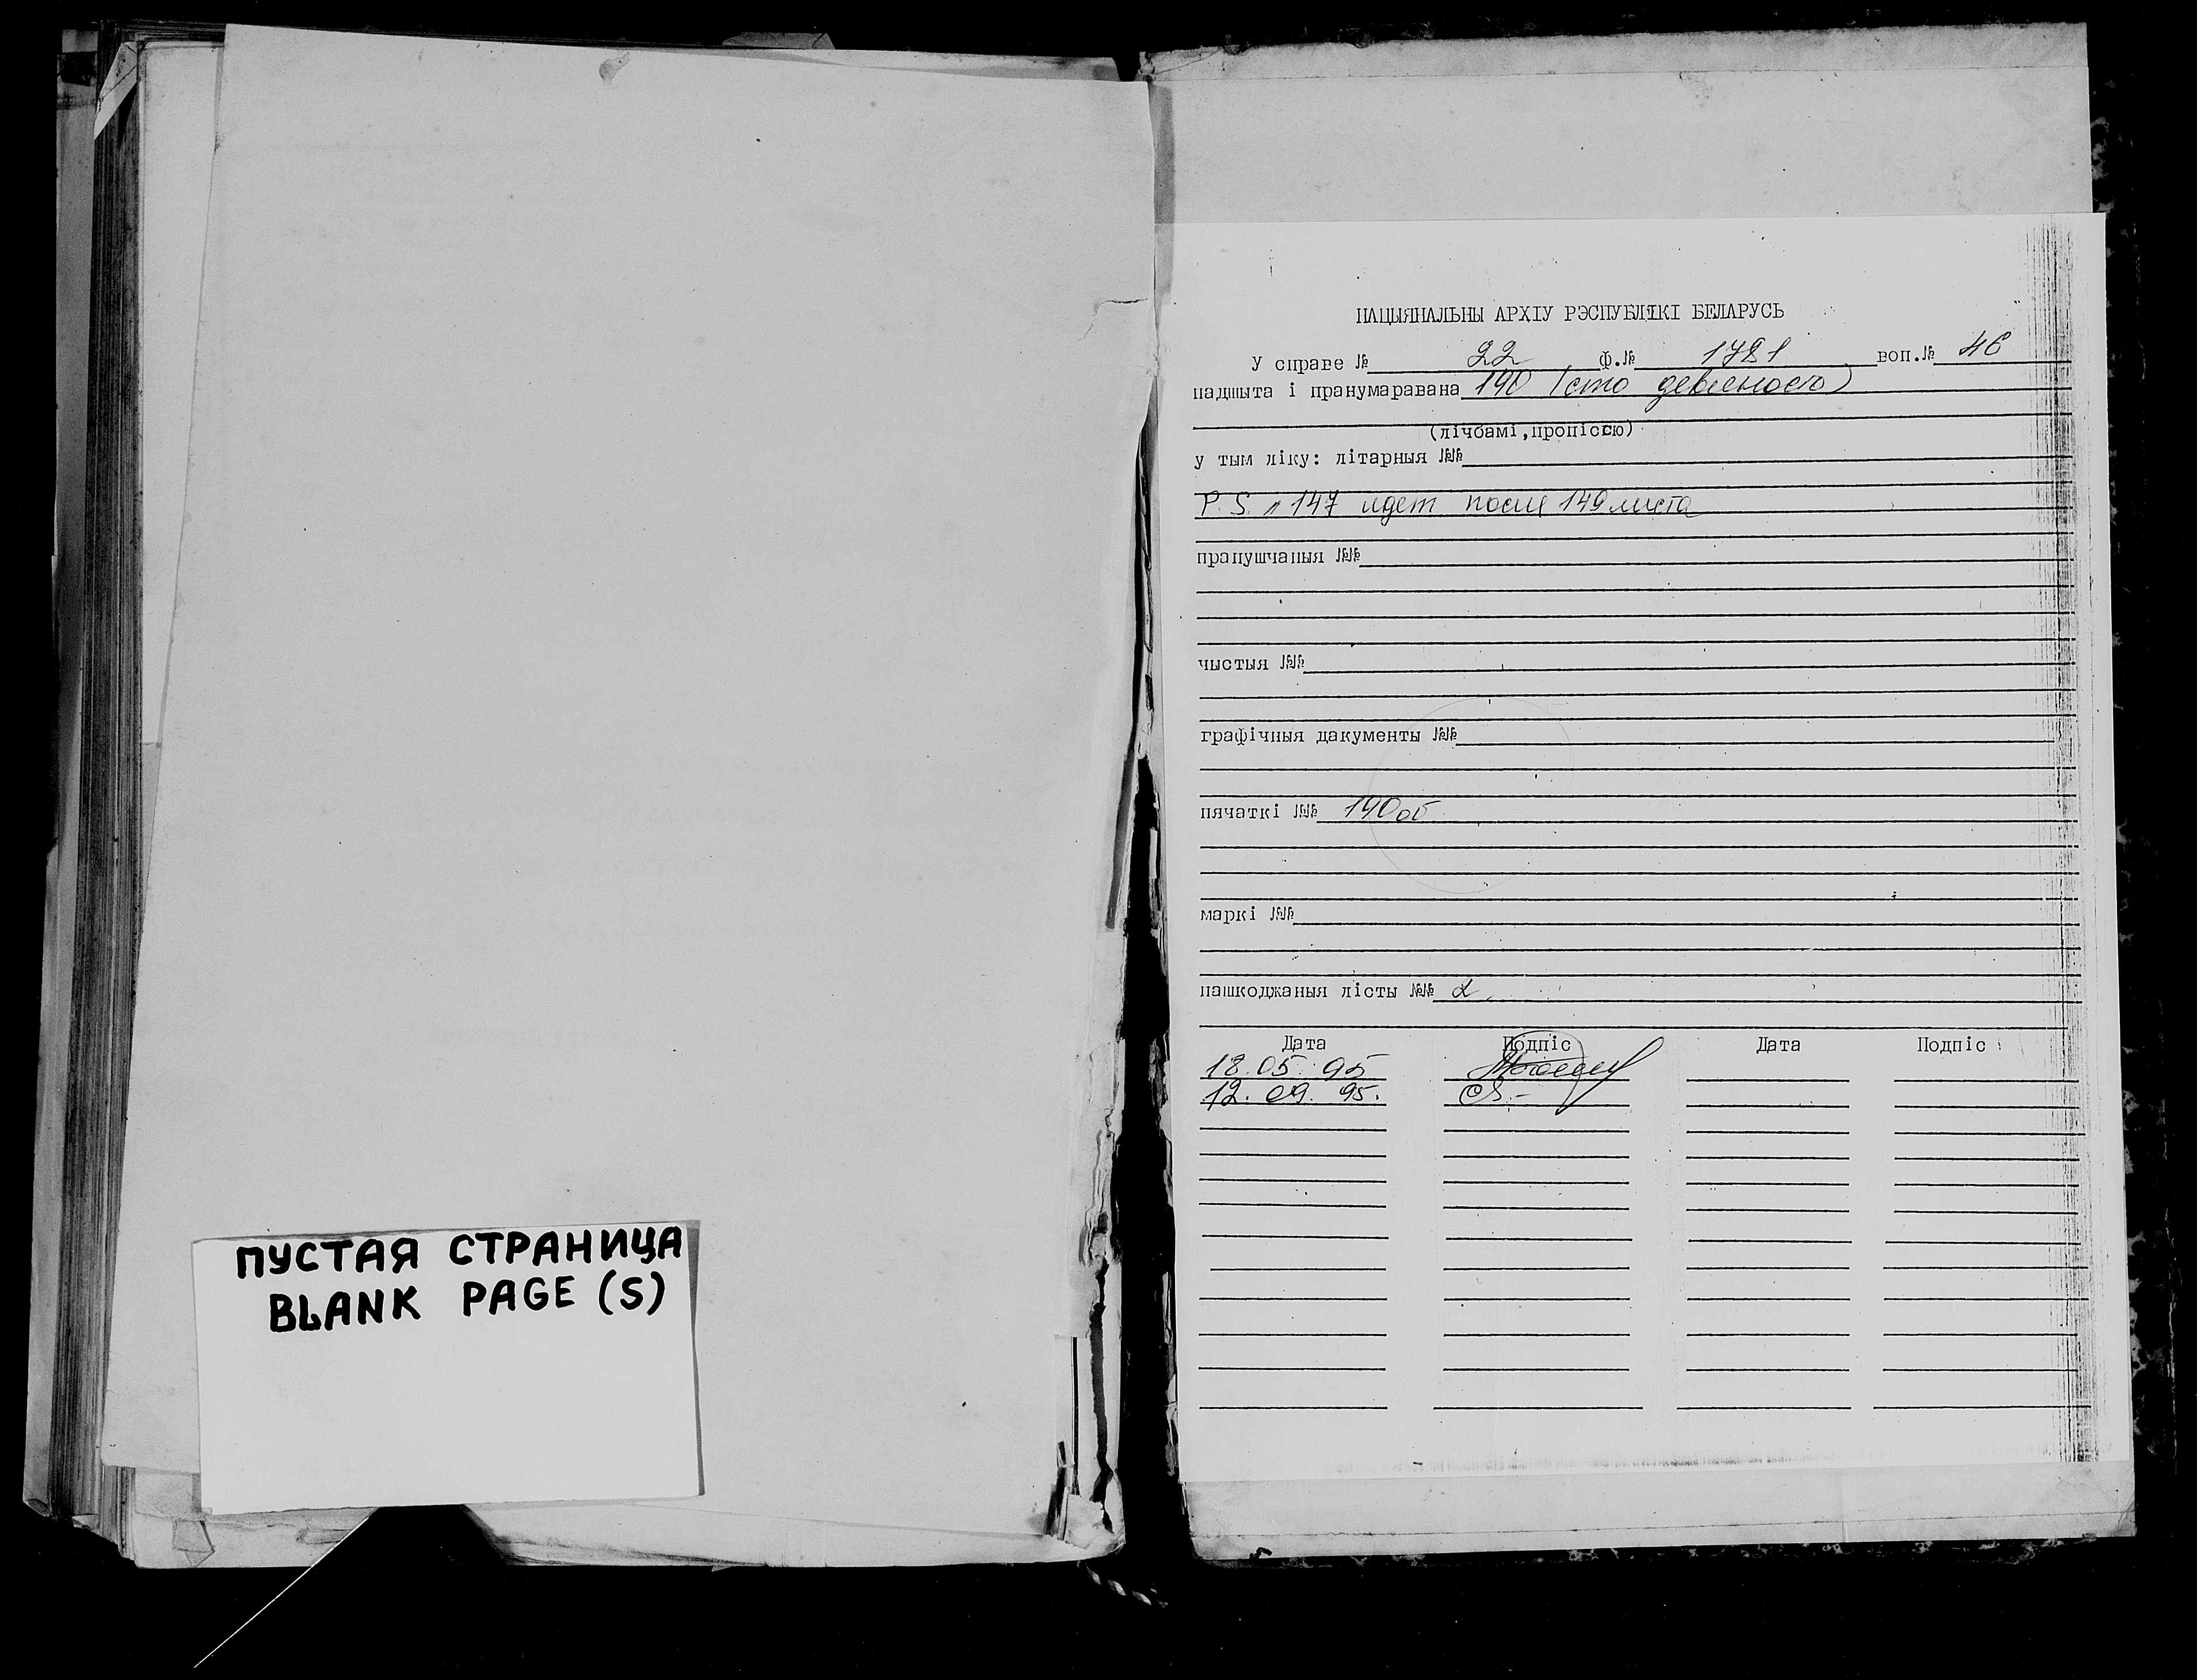 ПУСТАЯ СТРАНИЦА
BLANK PAGE (S)
НАЦЫЯНАЛЬНЫ АРХІУ РЭСПУБЛІКІ БЕЛАРУСЬ
У справе № 22 ф.№ 1781 воп.№ 46
падшыта і пранумаравана 190 (сто девяносто)
(лічбамі,пропіссю)
у тым ліку: літарныя №№
P.S. л 147 идет после 149 листа
прапушчаныя №№
чыстыя №№
графічныя дакументы №№
пячаткі №№ 190об
маркі №№
пашкоджаныя лісты №№
Дата Подпіс Дата Подпіс
18.05.95
12.09.95.